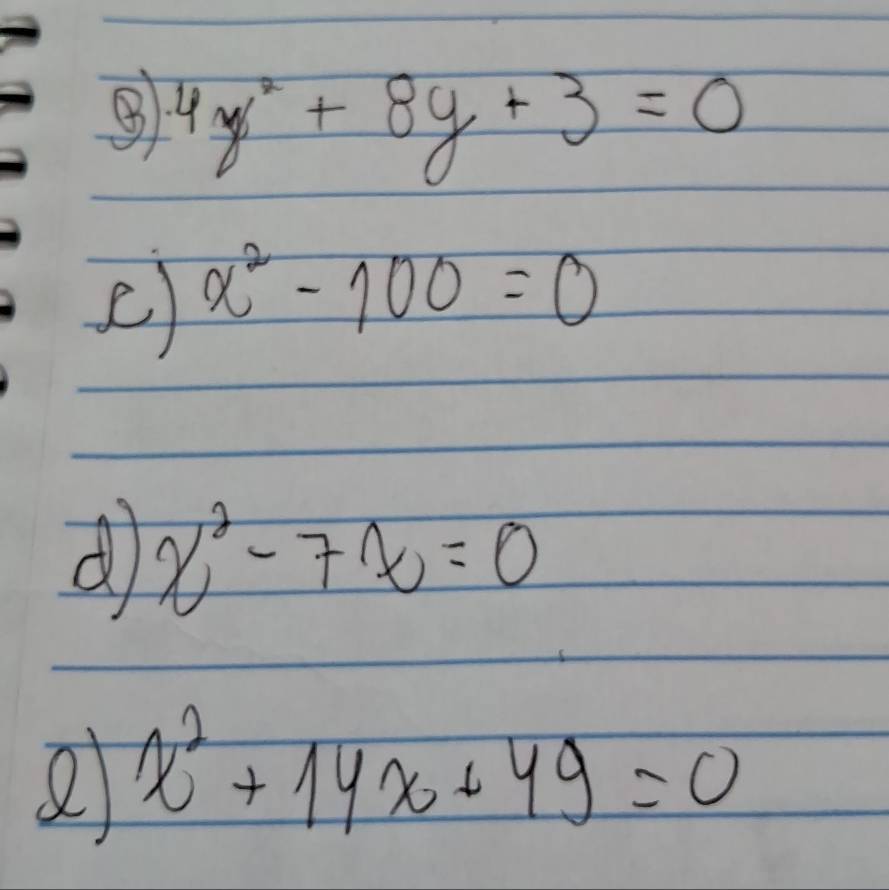 B) 4y² + 8y + 3 = 0
c) x² - 100 = 0
d) x² - 7x = 0
e) x² + 14x + 49 = 0